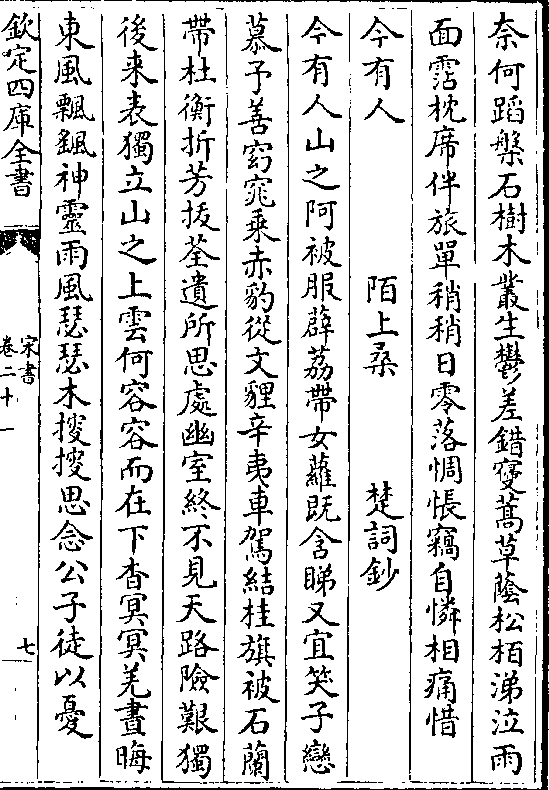 奈何蹈槃石樹木叢生鬱差錯寢蒿草蔭松栢涕泣雨
面霑枕席伴旅單稍稍日零落惆悵竊自憐相痛惜
今有人　陌上桑　楚詞鈔
今有人山之阿被服薜荔帶女蘿既含睇又宜笑子戀
慕予善窈窕乗赤豹從文貍辛夷車駕結桂旗被石蘭
帶杜衡折芳拔荃遺所思處幽室終不見天路險艱獨
後来表獨立山之上雲何容容而在下杳冥冥羌晝晦
東風飄颻神靈雨風瑟瑟木搜搜思念公子徒以憂
欽定四庫全書
宋書
卷二十一
七